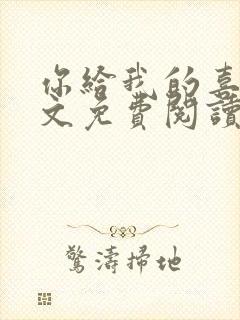 你給我的喜
文免費閱讀
驚濤掃地